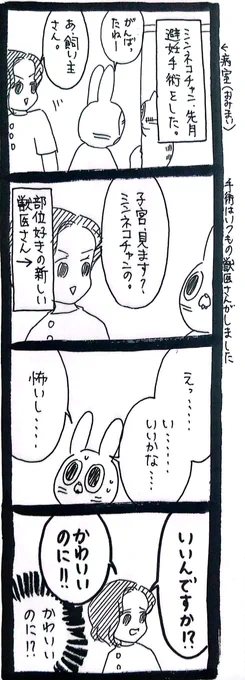 ミシンネコチャン、先月
避妊手術をした。
←病室(おみまい)
がんばっ
たねー
あ、飼い主
さん。
手術はいつもの獣医さんがしました
子宮、見ます？
ミシンネコチャンの。
部位好きの新しい
獣医さん→
えっ……
い……
いいかな…
怖いし……
いいんですか!?
かわいい
のに!!
かわいい
のに!?